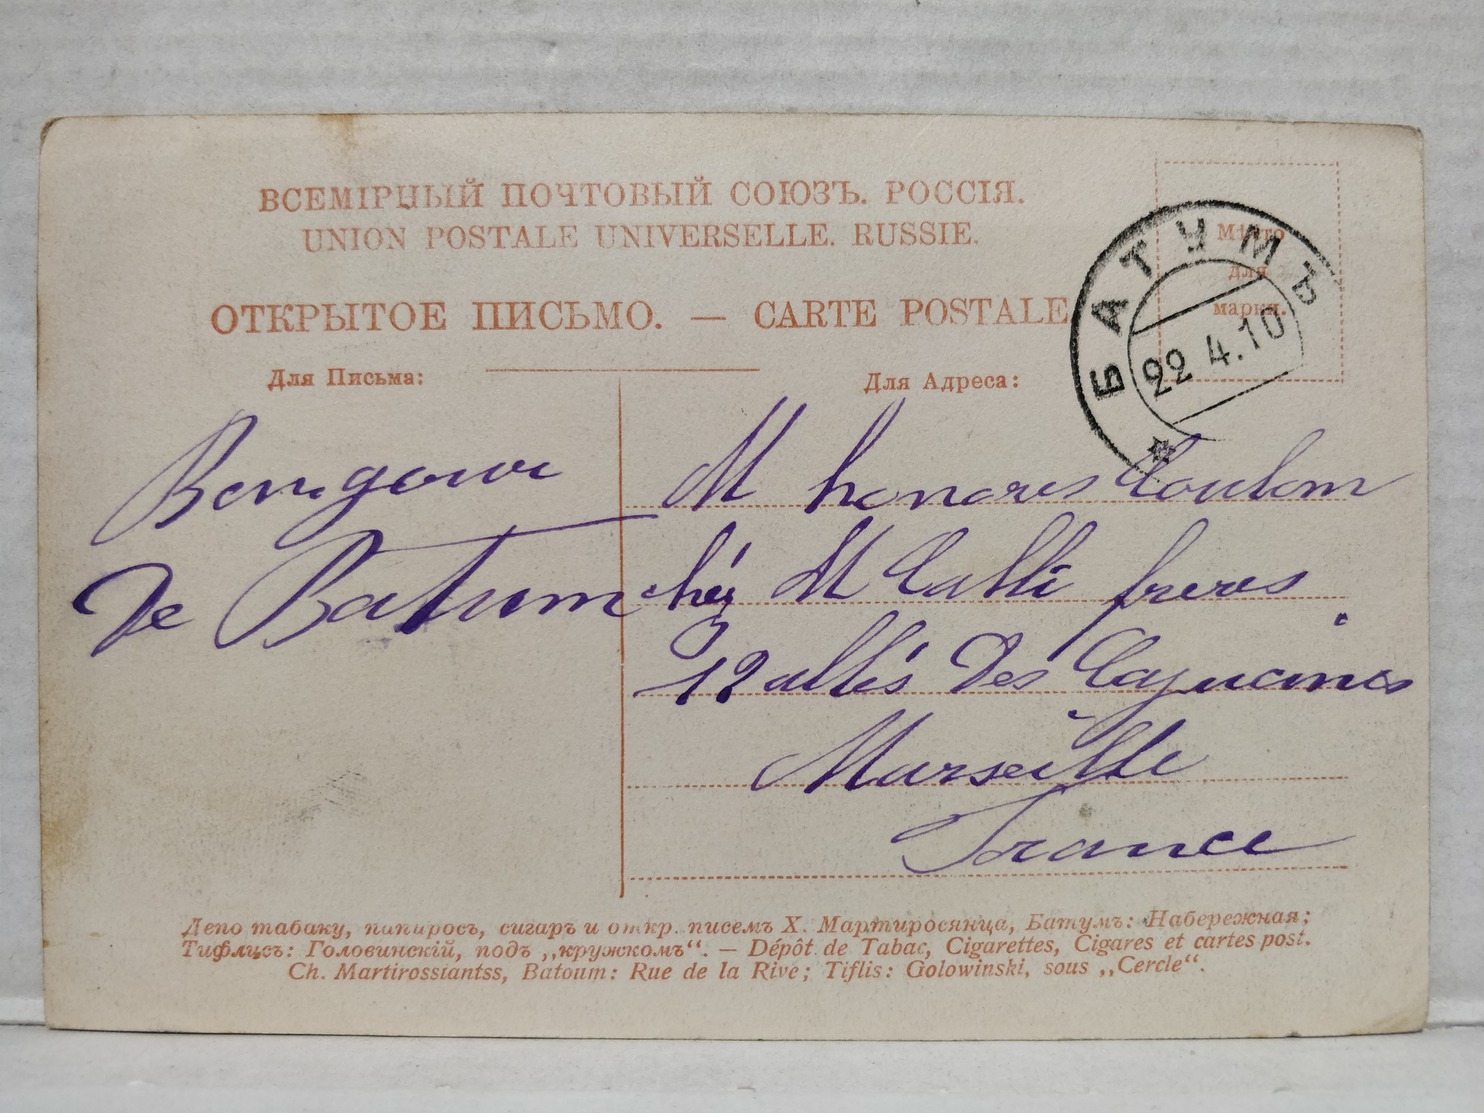 ВСЕМІРНЫЙ ПОЧТОВЫЙ СОЮЗЪ. РОССІЯ.
UNION POSTALE UNIVERSELLE. RUSSIE.
ОТКРЫТОЕ ПИСЬМО. — CARTE POSTALE
Мѣсто
для
марки.
БАТУМЪ
22 4.10
Для Письма:
Для Адреса:
Bongour
De Batum
M honores Coulom
chéz M Calli freres
12 allés Des Capucines
Marseille
France
Депо табаку, папиросъ, сигаръ и откр. писемъ Х. Мартиросянца, Батумъ: Набережная;
Тифлисъ: Головинскій, подъ „кружкомъ“. — Dépôt de Tabac, Cigarettes, Cigares et cartes post.
Ch. Martirossiantss, Batoum: Rue de la Rive; Tiflis: Golowinski, sous „Cercle“.